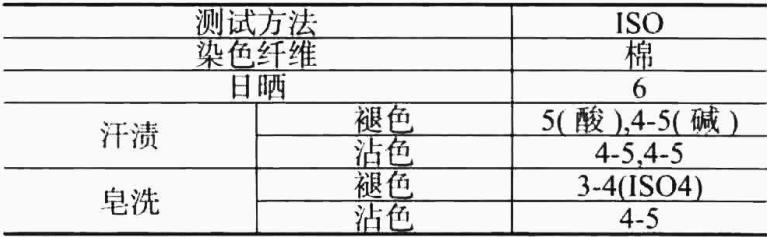 测试方法 ISO
染色纤维 棉
日晒 6
汗渍 褪色 5(酸),4-5(碱)
沾色 4-5,4-5
皂洗 褪色 3-4(ISO4)
沾色 4-5